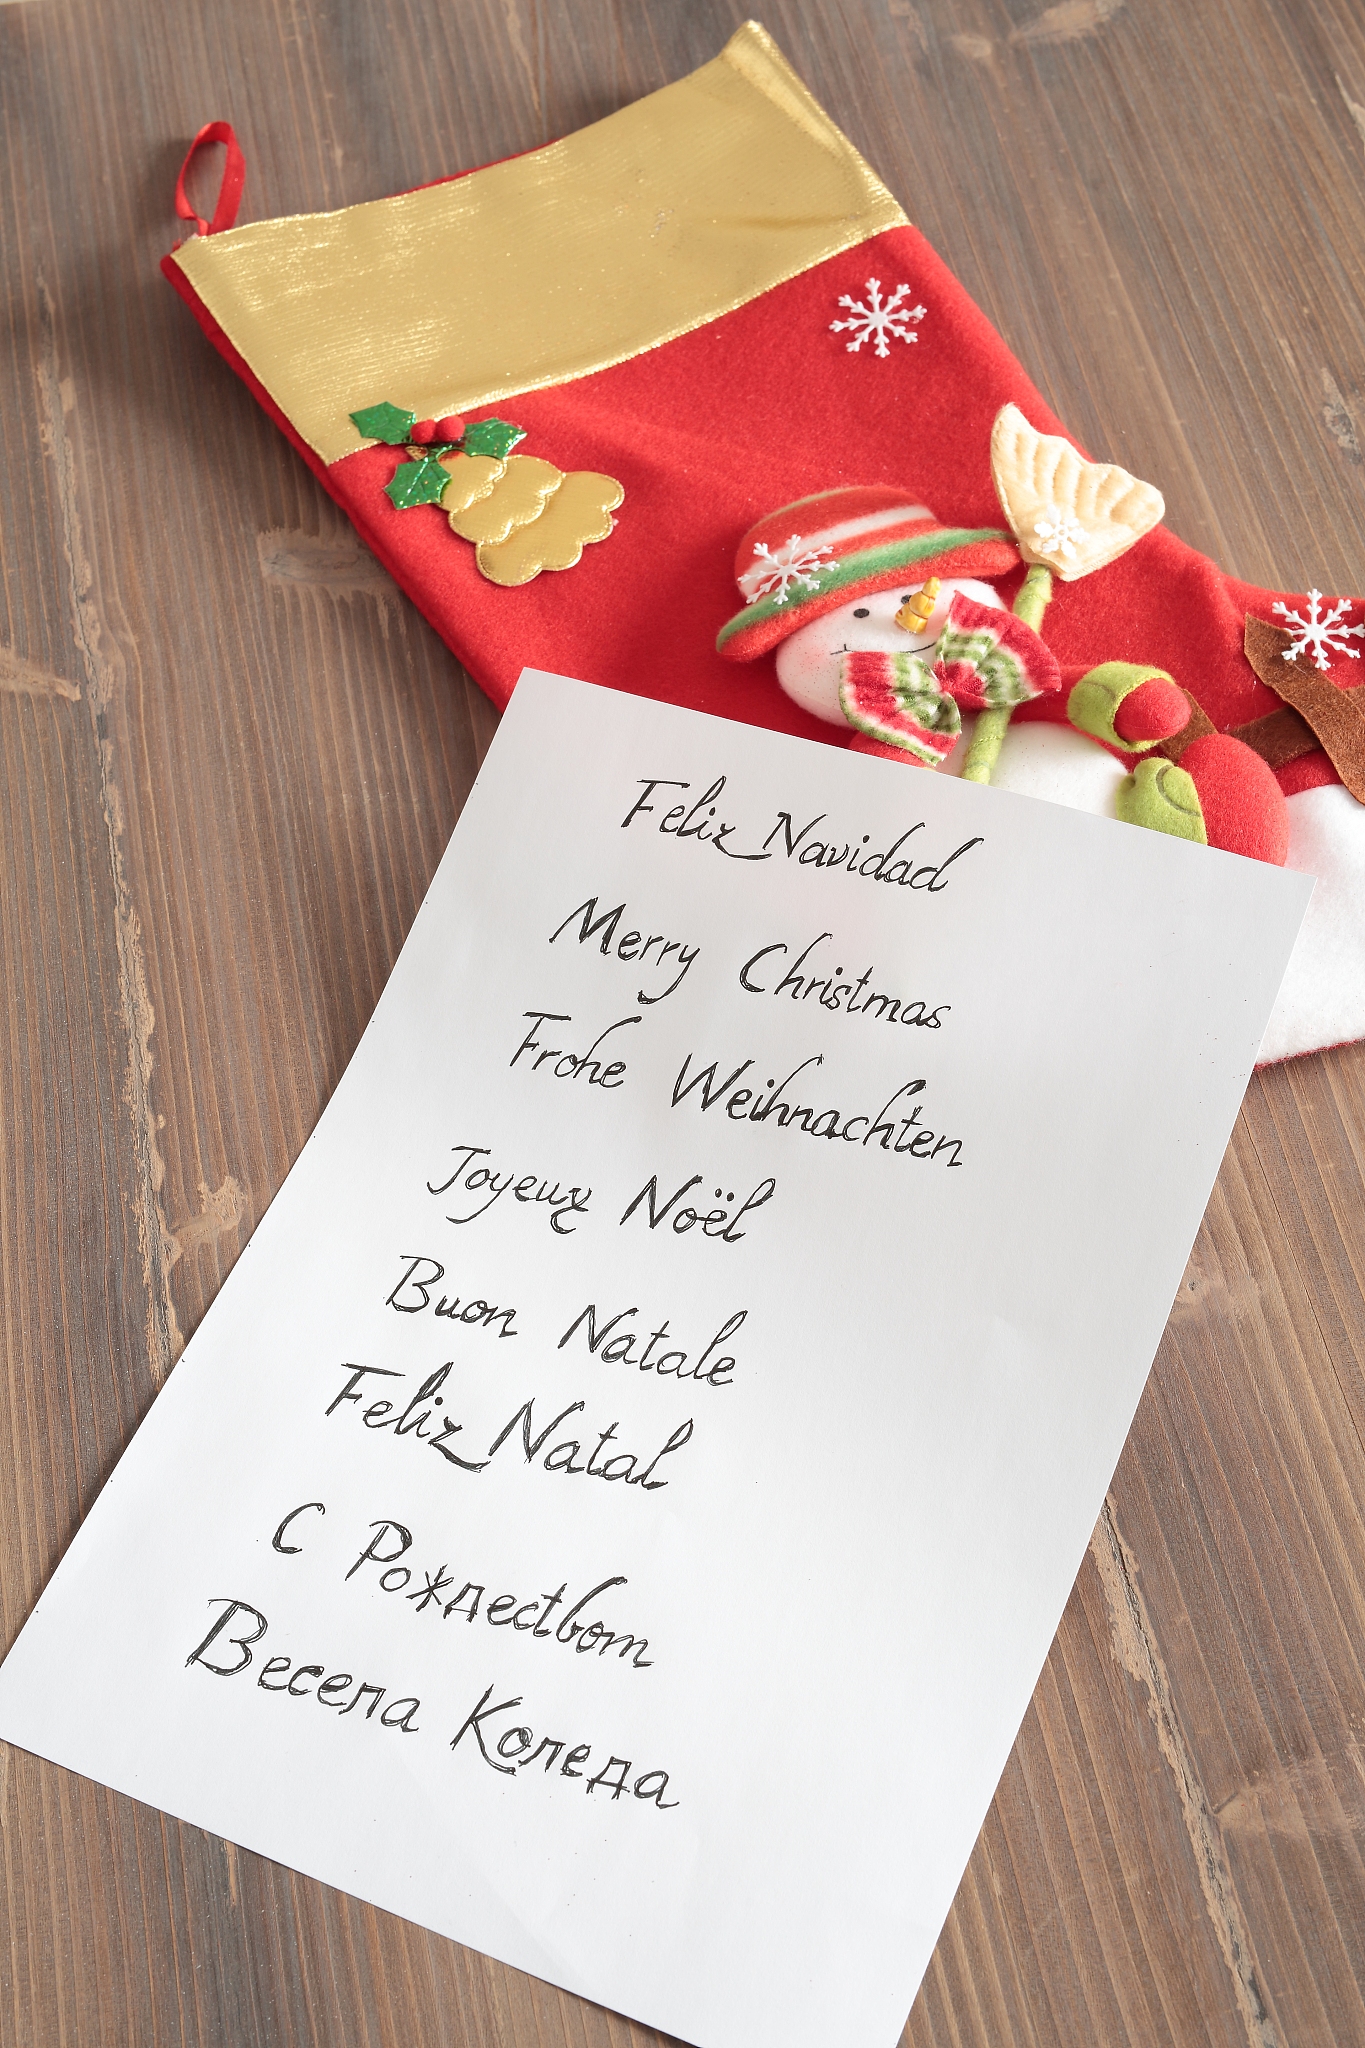 Feliz Navidad
Merry Christmas
Frohe Weihnachten
Joyeux Noël
Buon Natale
Feliz Natal
С Рождеством
Весела Коледа